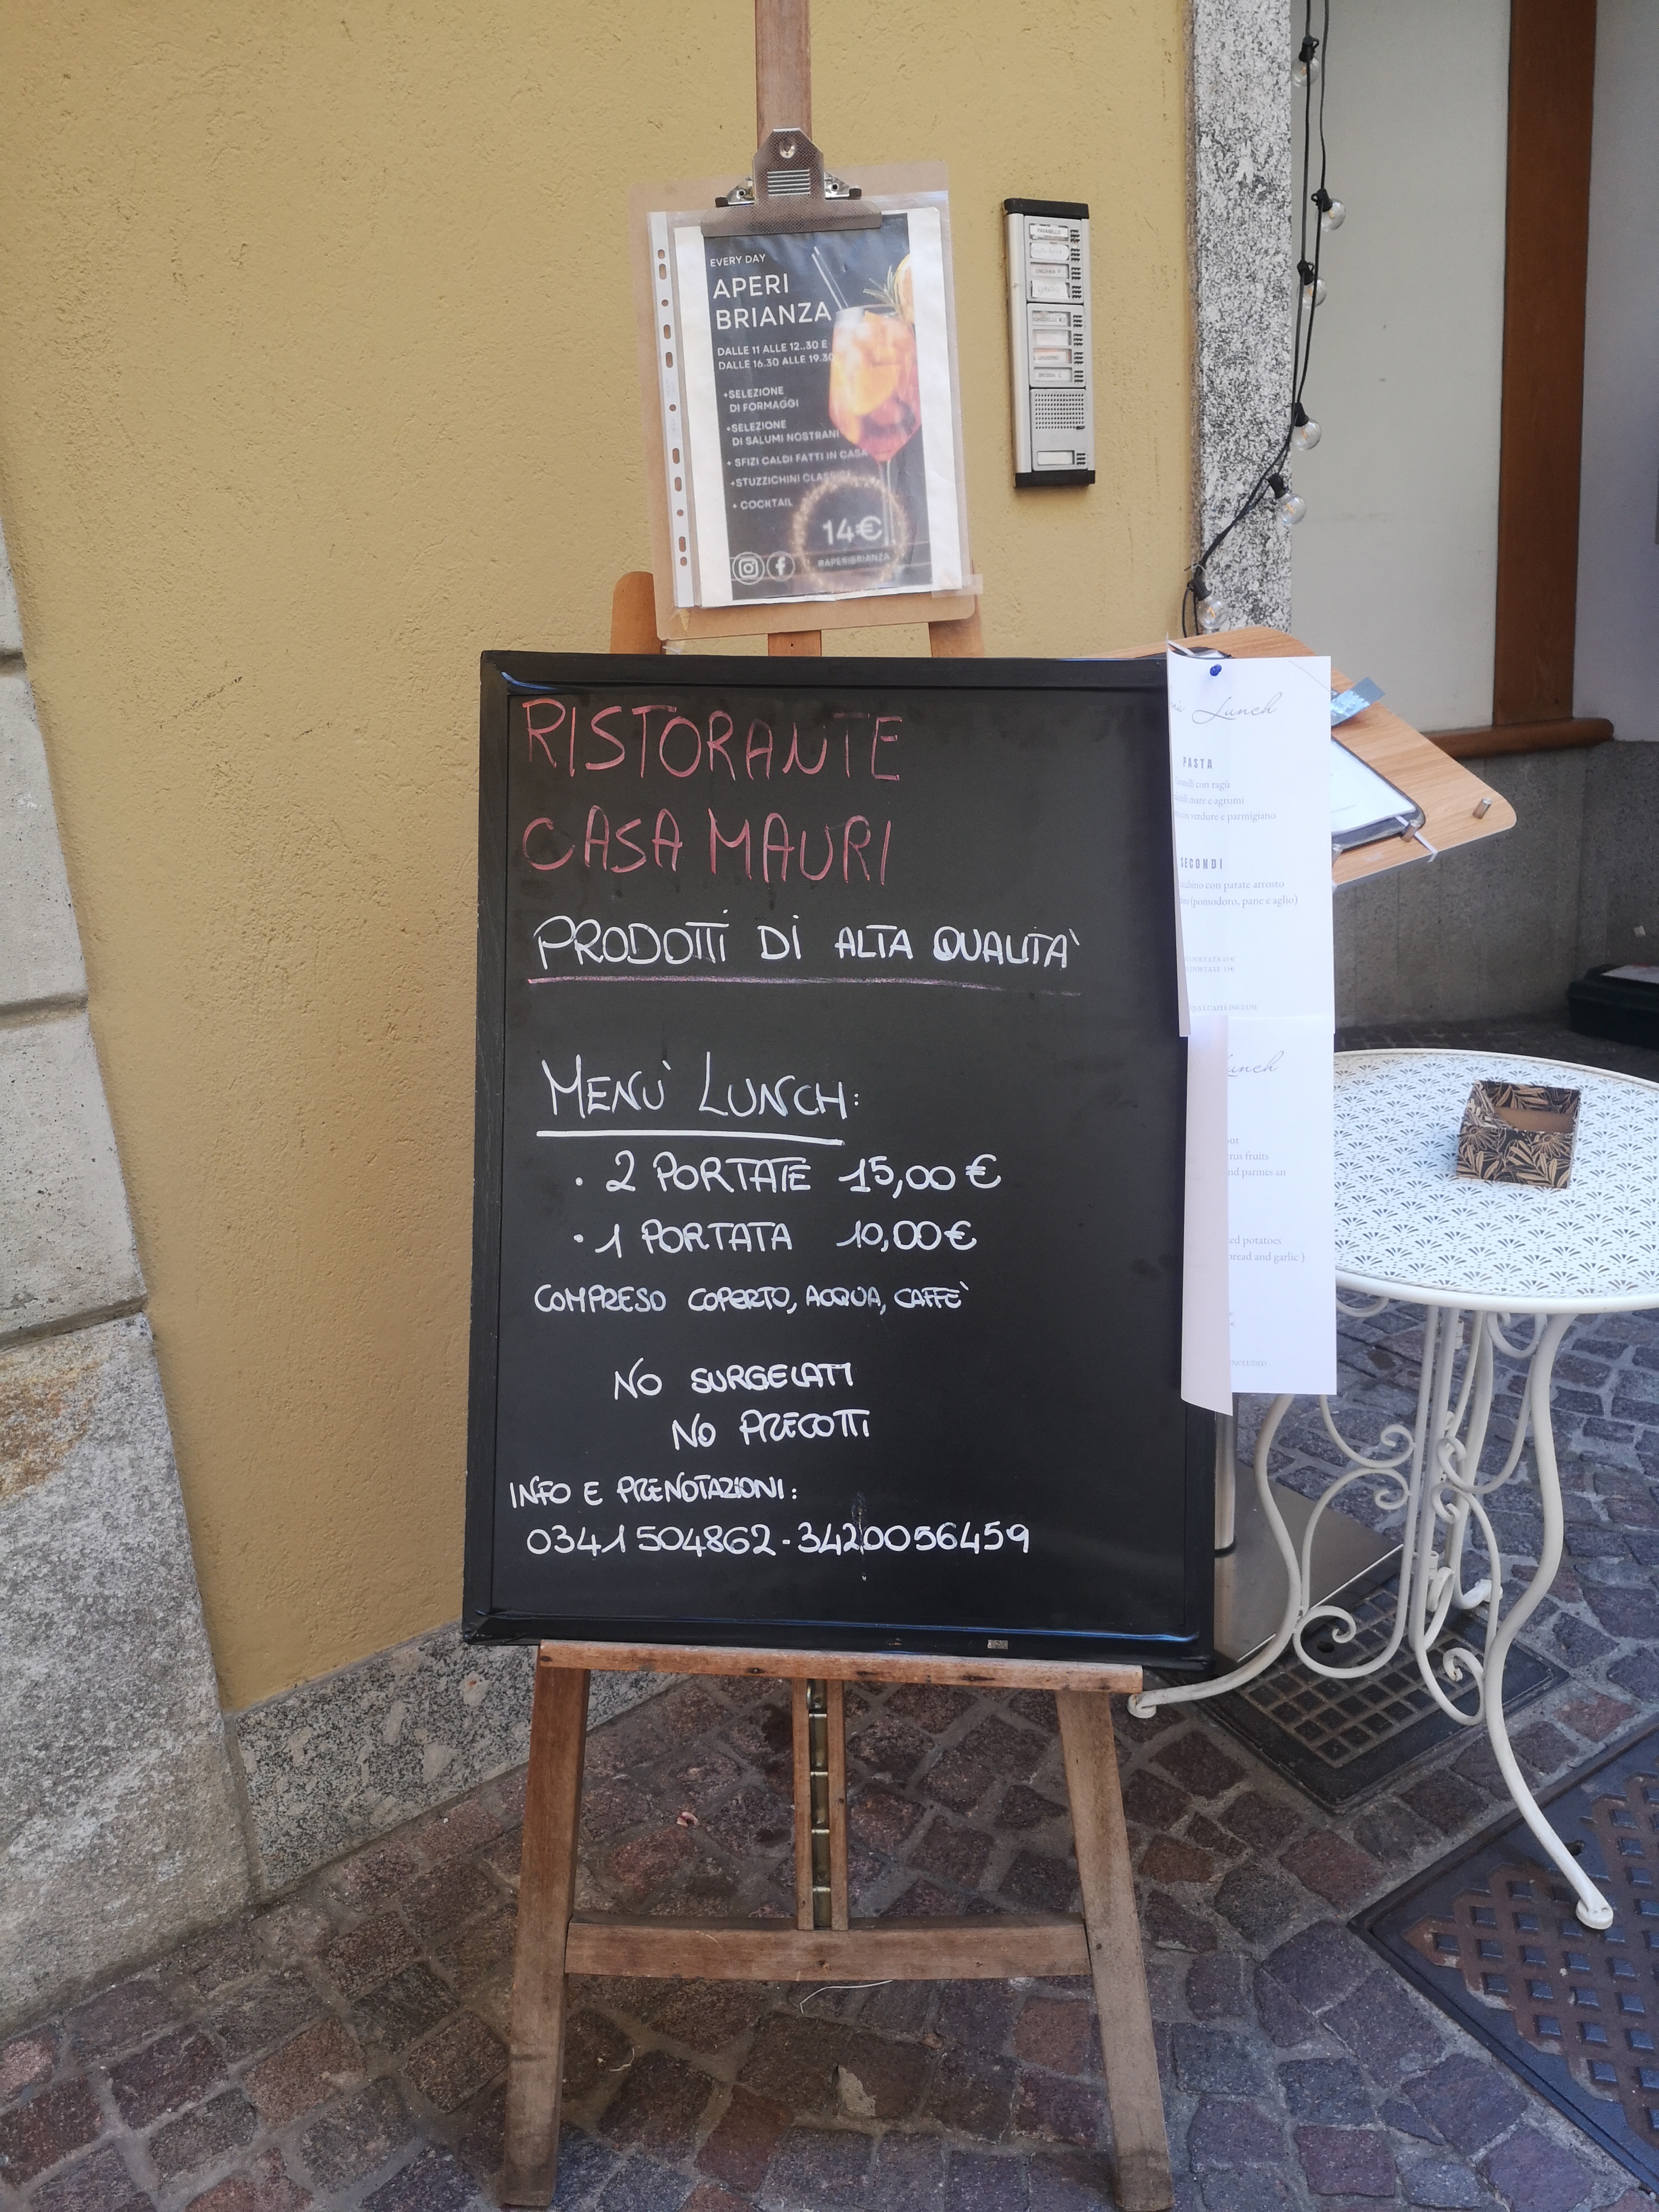 EVERY DAY
APERI
BRIANZA
DALLE 11 ALLE 12..30 E
DALLE 16.30 ALLE 19.30
+SELEZIONE
DI FORMAGGI
+SELEZIONE
DI SALUMI NOSTRANI
+ SFIZI CALDI FATTI IN CASA
+STUZZICHINI
+ COCKTAIL
14€
#APERIBRIANZA
RISTORANTE
CASA MAURI
PRODOTTI DI ALTA QUALITA'
MENU' LUNCH:
• 2 PORTATE 15,00€
• 1 PORTATA 10,00€
COMPRESO COPERTO, ACQUA, CAFFE'
NO SURGELATI
NO PRECOTTI
INFO E PRENOTAZIONI:
0341504862-3420056459
Lunch
PASTA
con ragù
mare e agrumi
verdure e parmigiano
SECONDI
con patate arrosto
(pomodoro, pane e aglio)
CAFFÈ INCLUSI
unch
out
rus fruits
nd parmes an
ed potatoes
bread and garlic )
INCLUDED